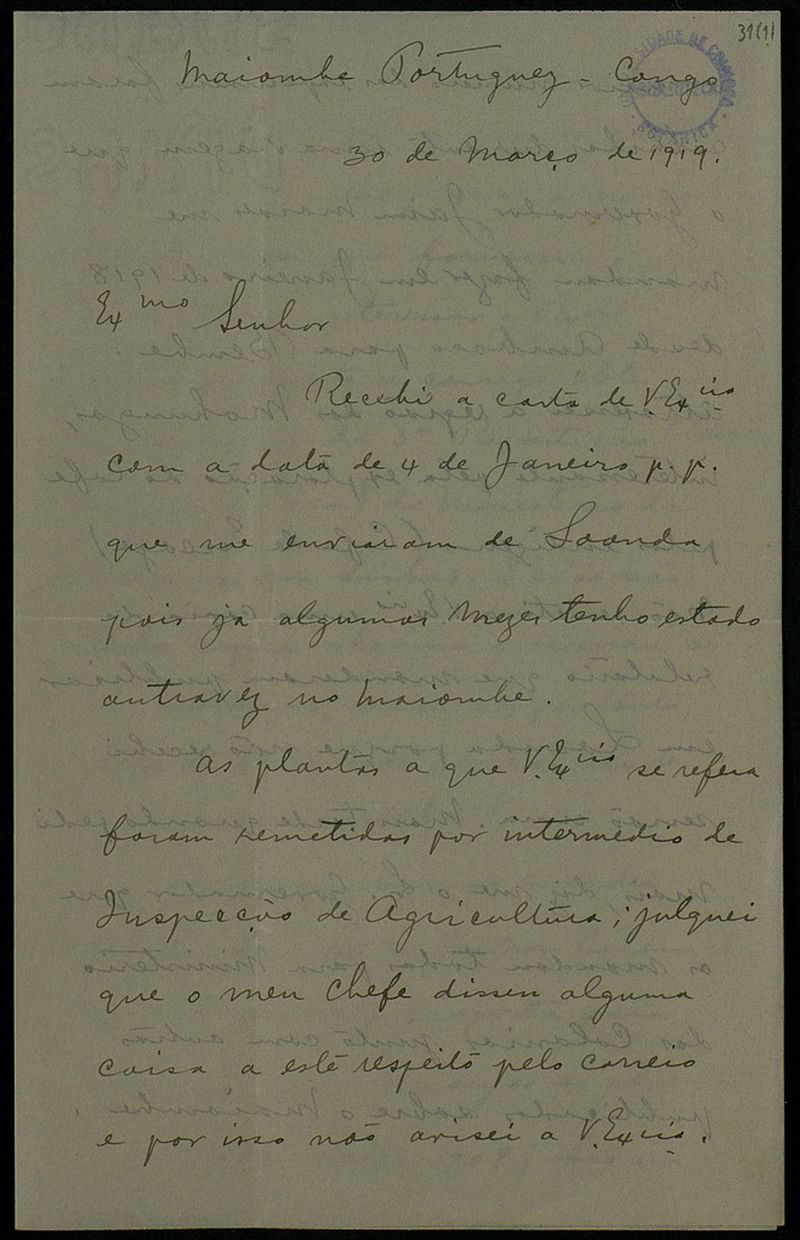 31(1)
UNIVERSIDADE DE COIMBRA
BOTANICA
Maiombe Portuguez - Congo
30 de Março de 1919.
Exmo Senhor
Recebi a carta de V. Excia
com a data de 4 de Janeiro p. p.
que me enviaram de Loanda
pois ja algumas mezes tenho estado
outravez no Maiombe.
As plantas a que V. Excia se refera
foram remetidas por intermedio de
Inspecção de Agricultura; julguei
que o meu chefe dissese alguma
coisa a este respeito pelo correio
e por isso não avisei a V. Excia.